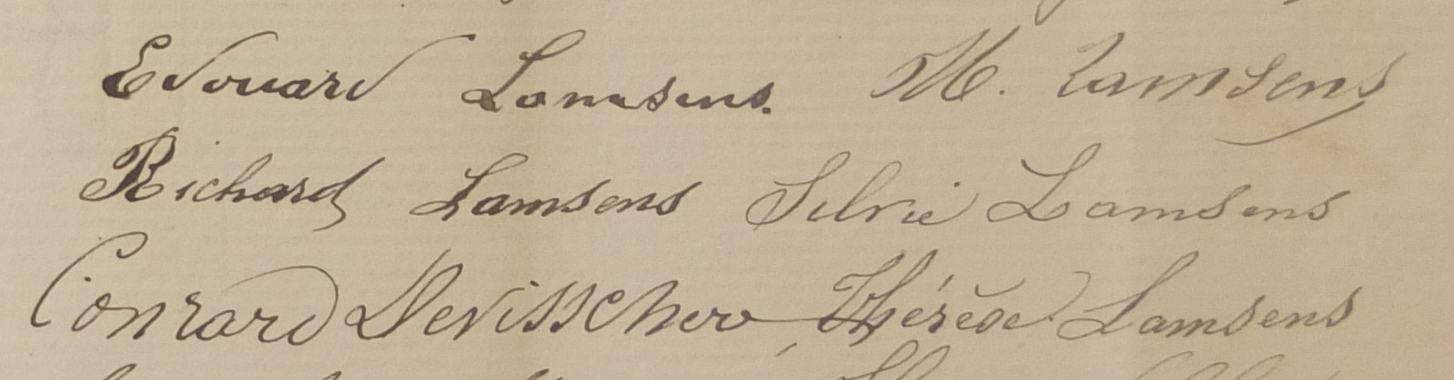 Edouard Lamsens. M. Lamsens
Richard Lamsens Silvie Lamsens
Conrard Devisscher Thérèse Lamsens